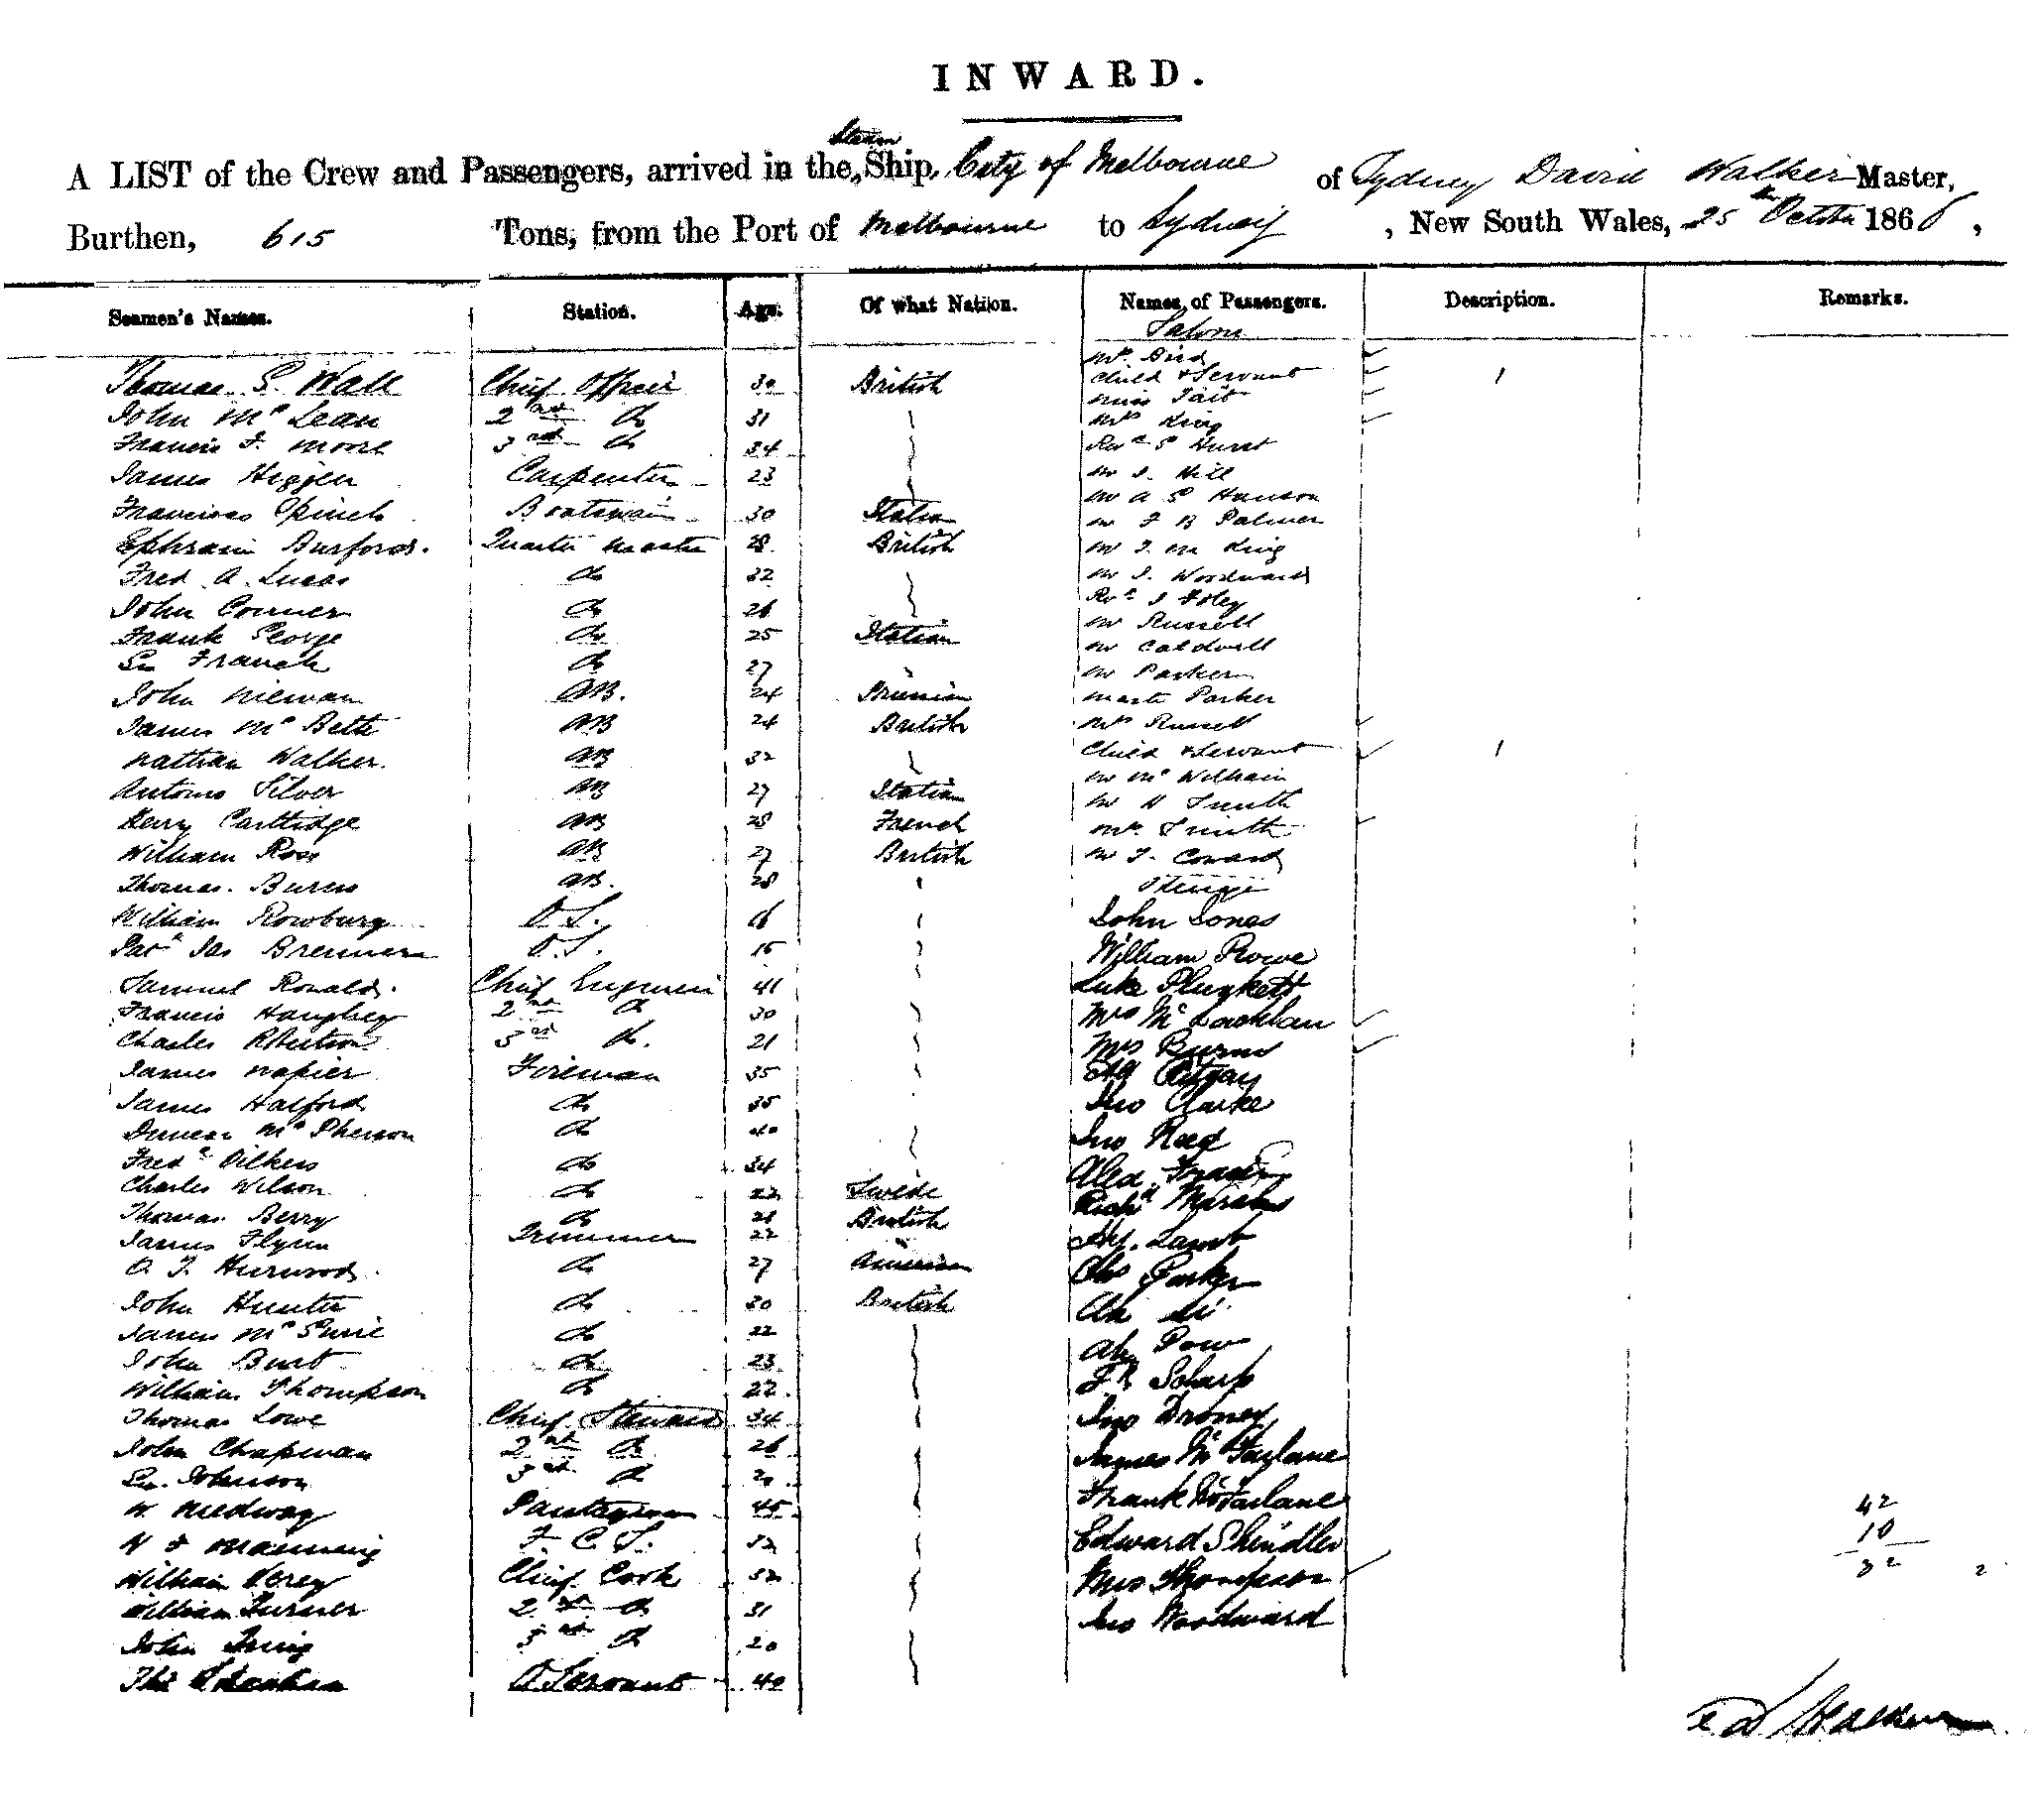 INWARD.
Steam
A LIST of the Crew and Passengers, arrived in the Ship, City of Melbourne of Sydney David Walker Master,
Burthen, 615 Tons, from the Port of Melbourne to Sydney, New South Wales, 25th October 186
Seamen's Names. Station. Age. Of what Nation. Names of Passengers. Description. Remarks.
Saloon
Mrs Bird
Thomas G. Wall Chief Officer 30 British Child & Servant 1
Miss Tait
John McLean 2nd do 31 Mrs King
Francis F. Moore 3rd do 34 Revd G Hurst
James Higgen Carpenter 23 Mr J. Hill
Mr A G Hanson
Francisco Boatswain 30 Italian Mr F B Palmer
Ephraim Burford. Quarter Master 28 British Mr T. M King
Fred A. Lucas do 32 Mr J. Woodward
John Conner do 26 Revd J Foley
Mr Russell
Frank George do 25 Italian Mr Caldwell
Geo French do 27 Mr Parker
John Nieman AB. 24 Prussian Master Parker
James McBeth AB 24 British Mrs Russell
Nathan Walker. AB 32 Child & Servant 1
Antonio Silver AB 27 Italian Mr McWilliam
Mr H Smith
Henry Carttidge AB 28 French Mrs Smith
William Ross AB 27 British Mr T. Coward
Thomas. Burns AB. 28 Steerage
William Rowburg O S. John Jones
Patk Jas Brennan O.S. 15 William Rowe
Samuel Ronald. Chief Engineer 41 Luke Plunkett
Francis Humphrey 2nd do 30 Mrs McLachlan
Charles Robertson 3rd do. 21 Mrs Burns
James Napier Fireman 35
James Halford do 35 Jno Clarke
Duncan McPherson do 40 Jno Reed
Fredk Dilkes do 34 Alex Fraser
Charles Wilson do 22 Swede Richd
Thomas Berry do 28 British
James Flynn Trimmer 22 Hy. Lamb
O. T. Hurwood. do 27 American Chs Parker
John Hunter do 20 British Ah
James McGuire do 22 Ah Pow
John Burt do 23 Scharp
William Thompson do 22
Thomas Lowe Chief Steward 34 Jno Droney
John Chapman 2nd do 26 James McFarlane
Geo. Johnson 3rd do 20
W. Medway Pantryman 45 Frank McFarlane 42
H F Manning F. C. S. 32 Edward Shindler 10
William Chief Cook 32 Mrs Thompson 32 2
William Turner 2nd do 31 Jno Woodward
John 3rd do 20
Servant 40
Walker